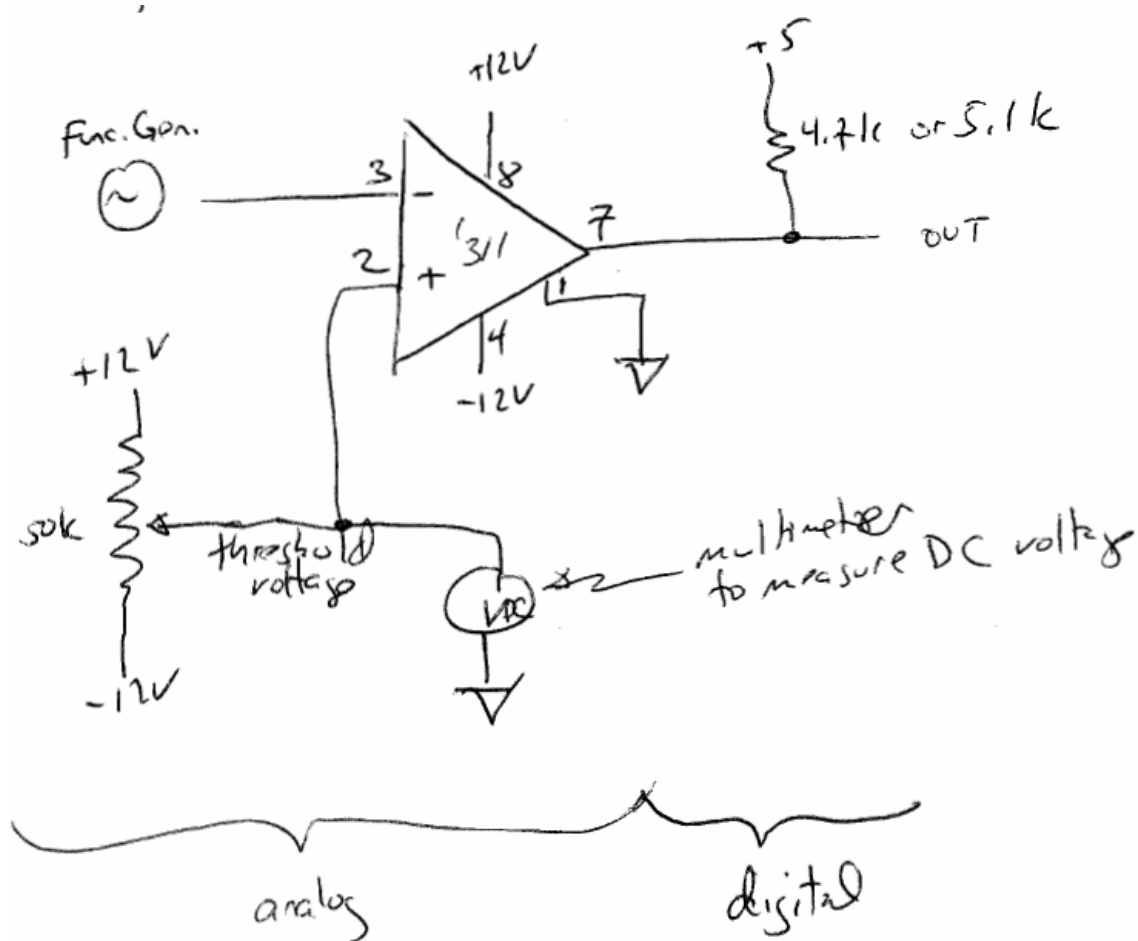 +12V
+5
Func. Gen.
4.7k or 5.1k
~
3
-
8
7
OUT
'311
2
+
1
4
-12V
+12V
50k
threshold
voltage
multimeter
to measure DC voltage
VDC
-12V
analog
digital